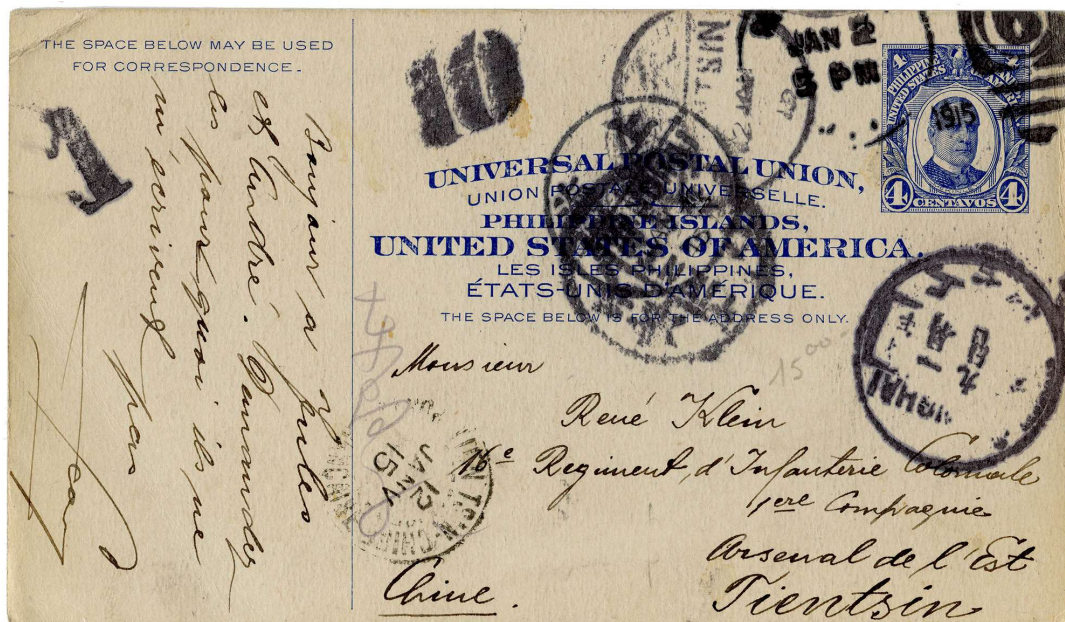 THE SPACE BELOW MAY BE USED
FOR CORRESPONDENCE.
Bonjour a Jules
et André. Demandez
les pourquoi ils ne
m'écrivent pas
Jean
T
10
JAN 2
5 PM
1915
PHILIPPINE ISLANDS
UNITED STATES OF AMERICA
4 CENTAVOS 4
UNIVERSAL POSTAL UNION,
UNION POSTALE UNIVERSELLE.
PHILIPPINE ISLANDS,
UNITED STATES OF AMERICA.
LES ISLES PHILIPPINES,
ÉTATS-UNIS D'AMÉRIQUE.
THE SPACE BELOW IS FOR THE ADDRESS ONLY.
1500
Monsieur
René Klein
16e Regiment d'Infanterie Coloniale
1ere Compagnie
Arsenal de l'Est
Tientsin
Chine.
TIEN-TSIN-CHINE
12
JANV
15